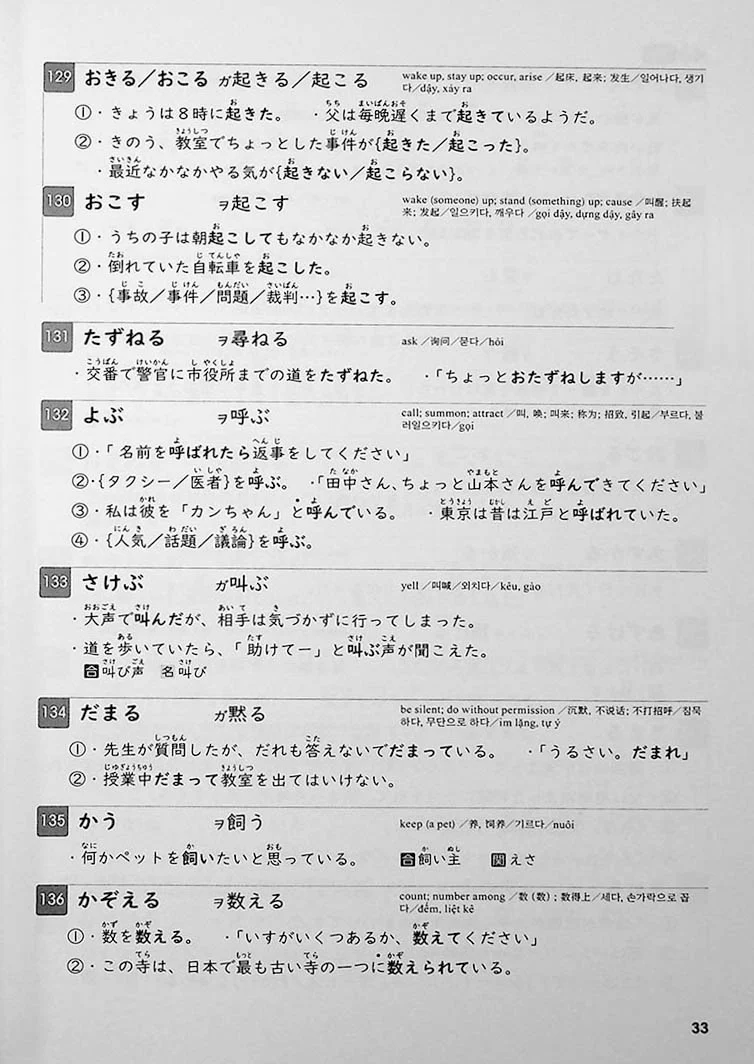 129 おきる／おこる ガ起きる／起こる wake up, stay up; occur, arise ／起床, 起来; 发生／일어나다, 생기
다／dậy, xảy ra
①・きょうは８時に起きた。 ・父は毎晩遅くまで起きているようだ。
②・きのう、教室でちょっとした事件が{起きた／起こった}。
・最近なかなかやる気が{起きない／起こらない}。
130 おこす ヲ起こす wake (someone) up; stand (something) up; cause ／叫醒; 扶起
来; 发起／일으키다, 깨우다／gọi dậy, dựng dậy, gây ra
①・うちの子は朝起こしてもなかなか起きない。
②・倒れていた自転車を起こした。
③・{事故／事件／問題／裁判…}を起こす。
131 たずねる ヲ尋ねる ask ／询问／묻다／hỏi
・交番で警官に市役所までの道をたずねた。 ・「ちょっとおたずねしますが……」
132 よぶ ヲ呼ぶ call; summon; attract ／叫, 唤; 叫来; 称为; 招致, 引起／부르다, 불
러일으키다／gọi
①・「名前を呼ばれたら返事をしてください」
②・{タクシー／医者}を呼ぶ。 ・「田中さん、ちょっと山本さんを呼んできてください」
③・私は彼を「カンちゃん」と呼んでいる。 ・東京は昔は江戸と呼ばれていた。
④・{人気／話題／議論}を呼ぶ。
133 さけぶ ガ叫ぶ yell ／叫喊／외치다／kêu, gào
・大声で叫んだが、相手は気づかずに行ってしまった。
・道を歩いていたら、「助けてー」と叫ぶ声が聞こえた。
合叫び声 名叫び
134 だまる ガ黙る be silent; do without permission ／沉默, 不说话; 不打招呼／침묵
하다, 무단으로 하다／im lặng, tự ý
①・先生が質問したが、だれも答えないでだまっている。 ・「うるさい。だまれ」
②・授業中だまって教室を出てはいけない。
135 かう ヲ飼う keep (a pet) ／养, 饲养／기르다／nuôi
・何かペットを飼いたいと思っている。 合飼い主 関えさ
136 かぞえる ヲ数える count; number among ／数 (数) ; 数得上／세다, 손가락으로 꼽
다／đếm, liệt kê
①・数を数える。 ・「いすがいくつあるか、数えてください」
②・この寺は、日本で最も古い寺の一つに数えられている。
33